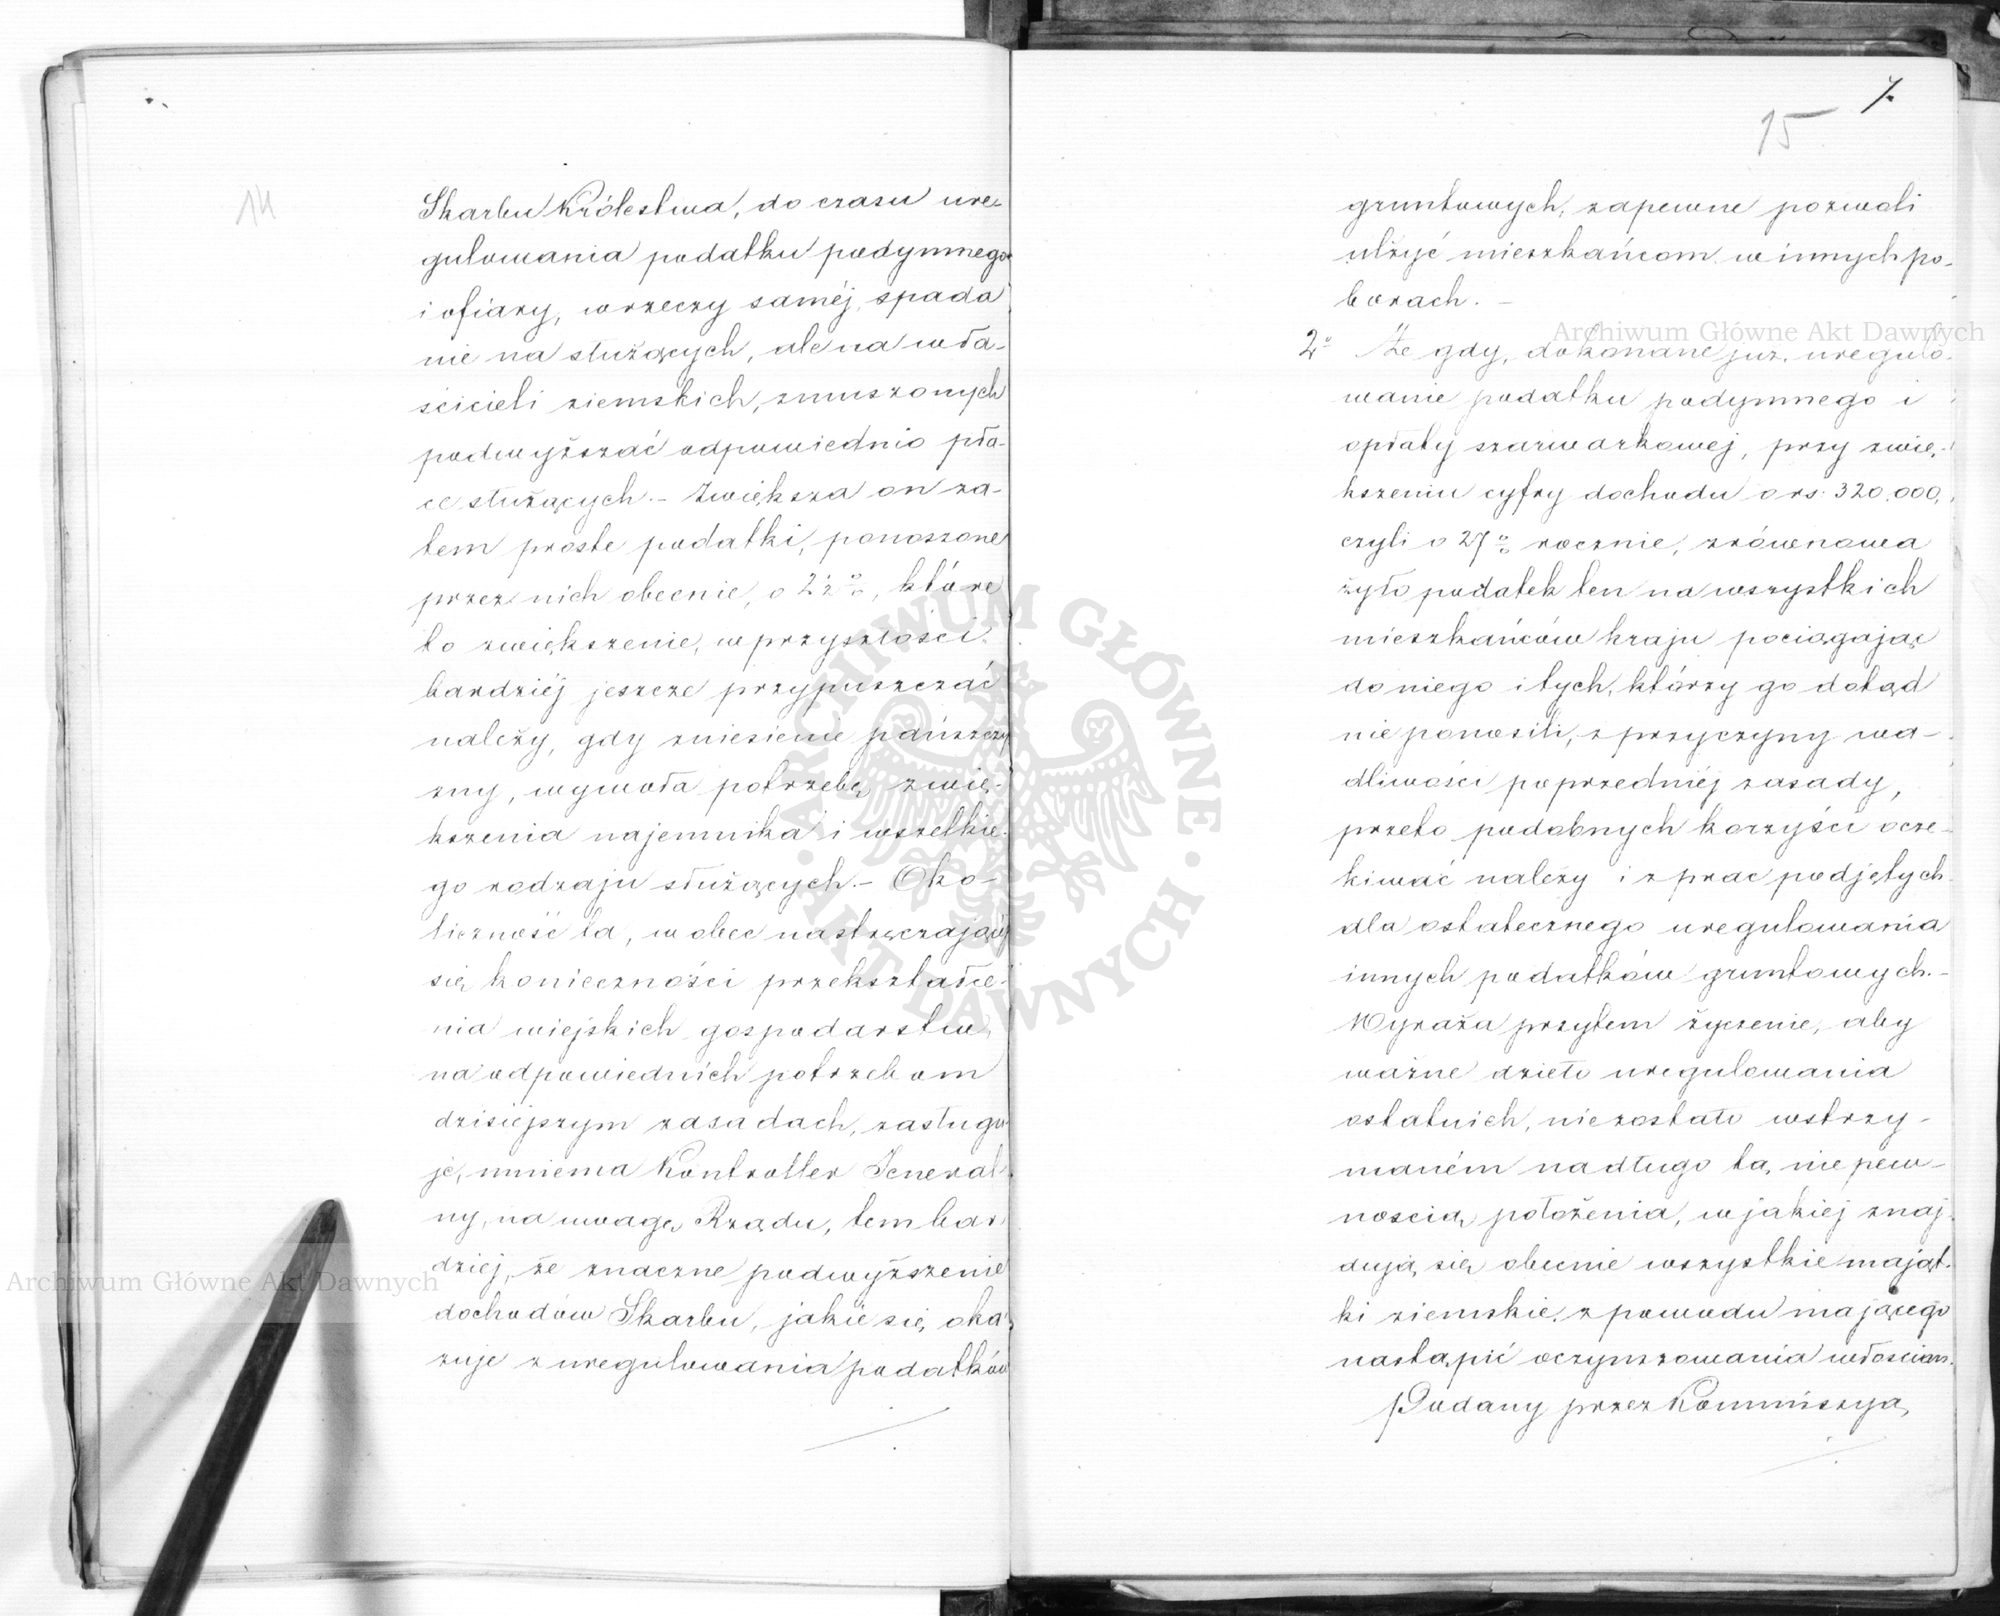 14
Skarbu Królestwa, do czasu ure-
gulowania podatku podymnego
i ofiary, w rzeczy saméj, spada
nie na służących, ale na wła-
ścicieli ziemskich, zmuszonych
podwyższać odpowiednio pła-
ce służących. – Zwiększa on za-
tem proste podatki, ponoszone
przez nich obecnie, o 2½ %, które
to zwiększenie, w przyszłości
bardziéj jeszcze przypuszczać
należy, gdy zniesienie pańszczy
zny, wywoła potrzebę zwię-
kszenia najemnika i wszelkie-
go rodzaju służących. – Oko-
liczność ta, w obec nastręczającéj
się konieczności przekształce-
nia wiejskich gospodarstw,
na odpowiednich potrzebom
dzisiejszym zasadach, zasługu-
je, mniema Kontroller Jeneral-
ny, na uwagę Rządu, tembar-
dziej, że znaczne podwyższenie
dochodów Skarbu, jakie się oka-
zuje z uregulowania podatków
7.
15
gruntowych, zapewne pozwoli
ulżyć mieszkańcom w innych po-
borach. –
2º Że gdy, dokonane już uregulo-
wanie podatku podymnego i
opłaty szarwarkowej, przy zwię-
kszeniu cyfry dochodu o rs. 320.000,
czyli o 27 % rocznie, zrównowa
żyło podatek ten na wszystkich
mieszkańców kraju pociągając
do niego i tych, którzy go dotąd
nie ponosili, z przyczyny wa-
dliwości poprzedniéj zasady,
przeto podobnych korzyści ocze-
kiwać należy i z prac podjętych
dla ostatecznego uregulowania
innych podatków gruntowych. –
Wyraża przytem życzenie, aby
ważne dzieło uregulowania
ostatnich, nie zostało wstrzy-
maném na długo tą niepew-
nością położenia, w jakiéj znaj-
dują się obecnie wszystkie mająt-
ki ziemskie, z powodu mającego
nastąpić oczynszowania włościan.
Podany przez Kommissyą,
Archiwum Główne Akt Dawnych
Archiwum Główne Akt Dawnych
ARCHIWUM GŁÓWNE · AKT DAWNYCH ·